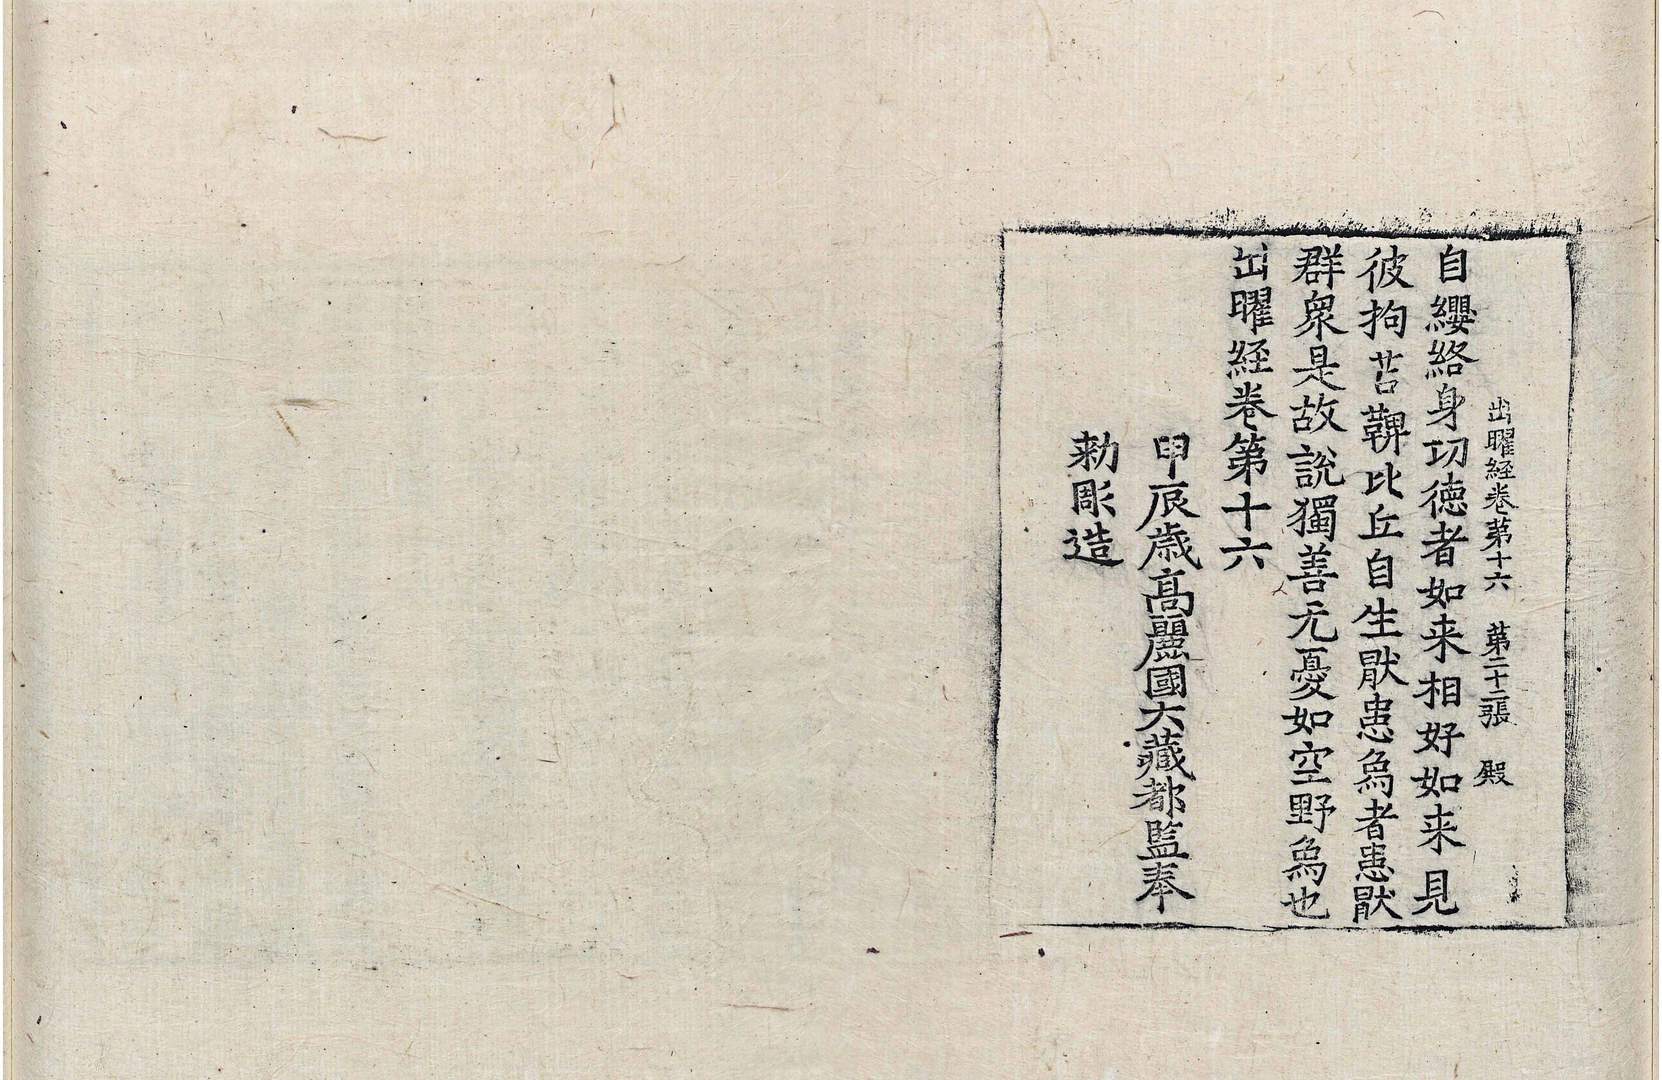 出曜経卷苐十六 苐二十二張 殿
自纓絡身功德者如来相好如来見
彼拘苫鞞比丘自生猒患爲者患猒
群衆是故說獨善无憂如空野爲也
出曜経卷第十六
甲辰歲高麗國大藏都監奉
勑彫造